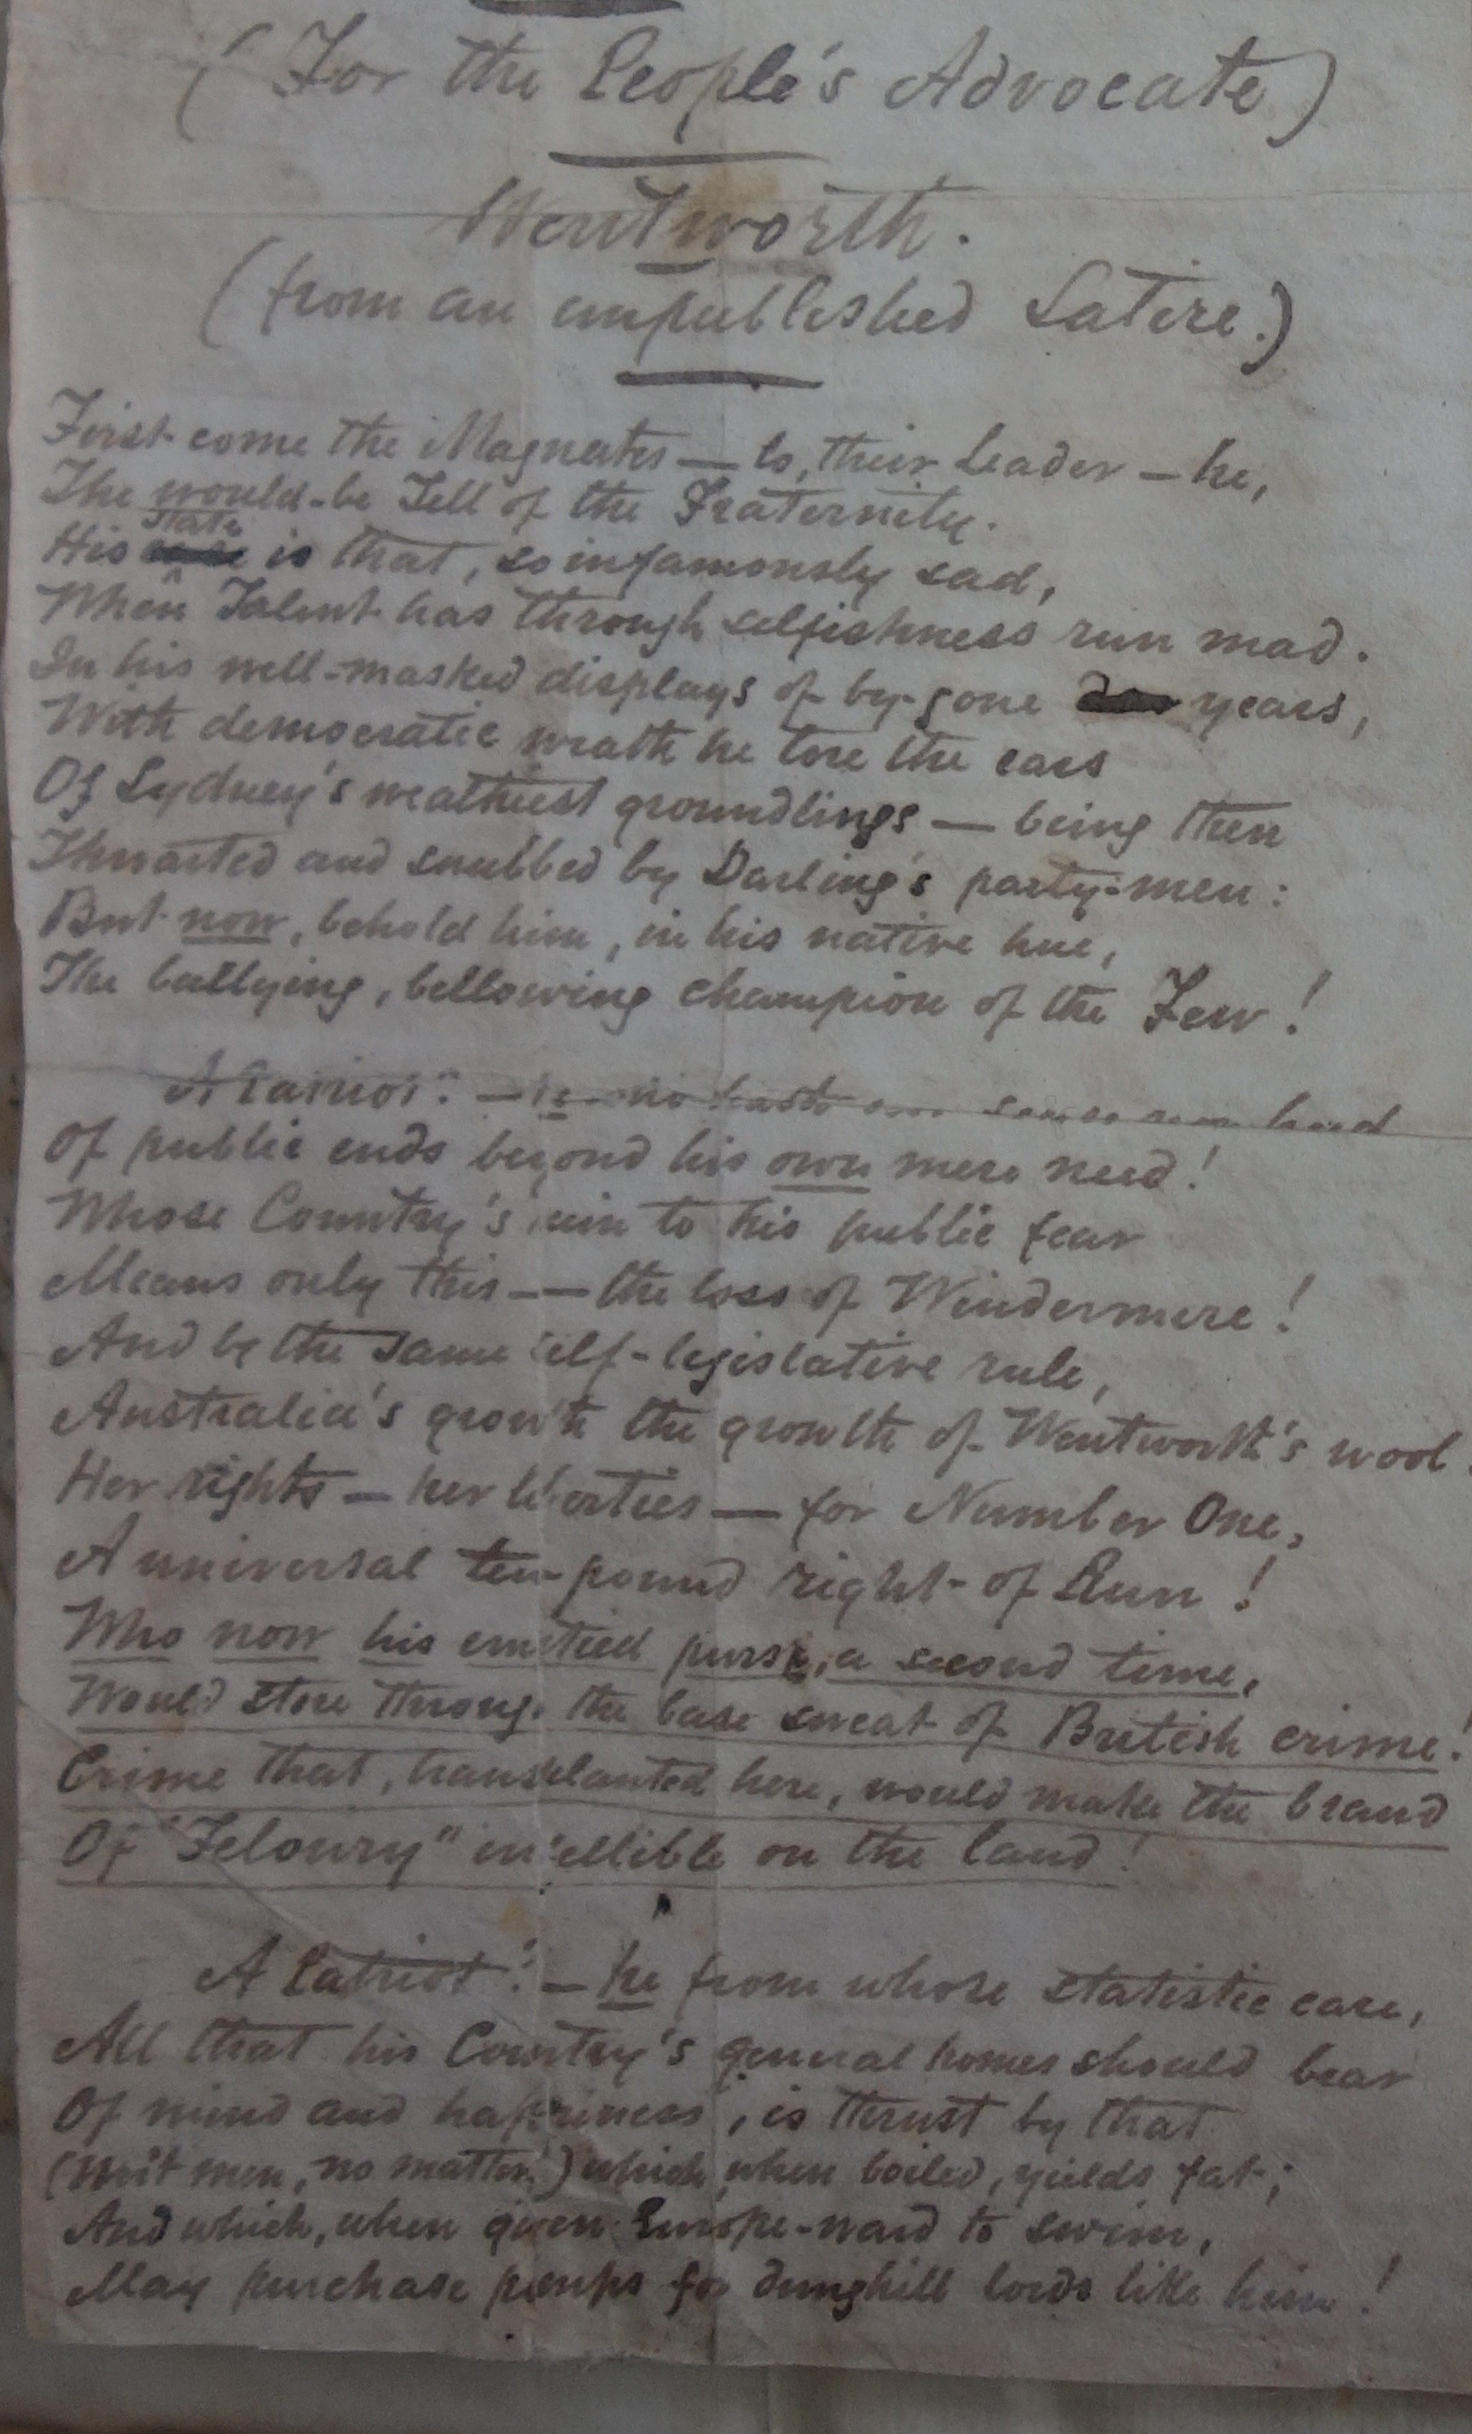 (For the People's Advocate)
Wentworth.
(from an unpublished Satire.)
First come the Magnates — lo, their Leader — he,
The would-be Tell of the Fraternity.
His state is that, so infamously sad,
When Talent has through selfishness run mad.
In his well-masked displays of by-gone years,
With democratic wrath he tore the ears
Of Sydney's wealthiest groundlings — being then
Thwarted and snubbed by Darling's party-men:
But now, behold him, in his native hue,
The bullying, bellowing champion of the Few!
A Patriot? — he who had
Of public ends beyond his own mere need!
Whose Country's ruin to his public fear
Means only this — the loss of Windermere!
And by the same self-legislative rule,
Australia's growth the growth of Wentworth's wool.
Her rights — her liberties — for Number One,
A universal ten-pound right-of Run!
Who now his emptied purse, a second time,
Would store through the base sweat of British crime!
Crime that, transplanted here, would make the brand
Of "Felonry" indellible on the land!
A Patriot? — he from whose statistic care,
All that his Country's general homes should bear
Of mind and happiness, is thrust by that
(Not men, no matter!) which, when boiled, yields fat;
And which, when given Europe-ward to swim,
May purchase pomps for dunghill lords like him!